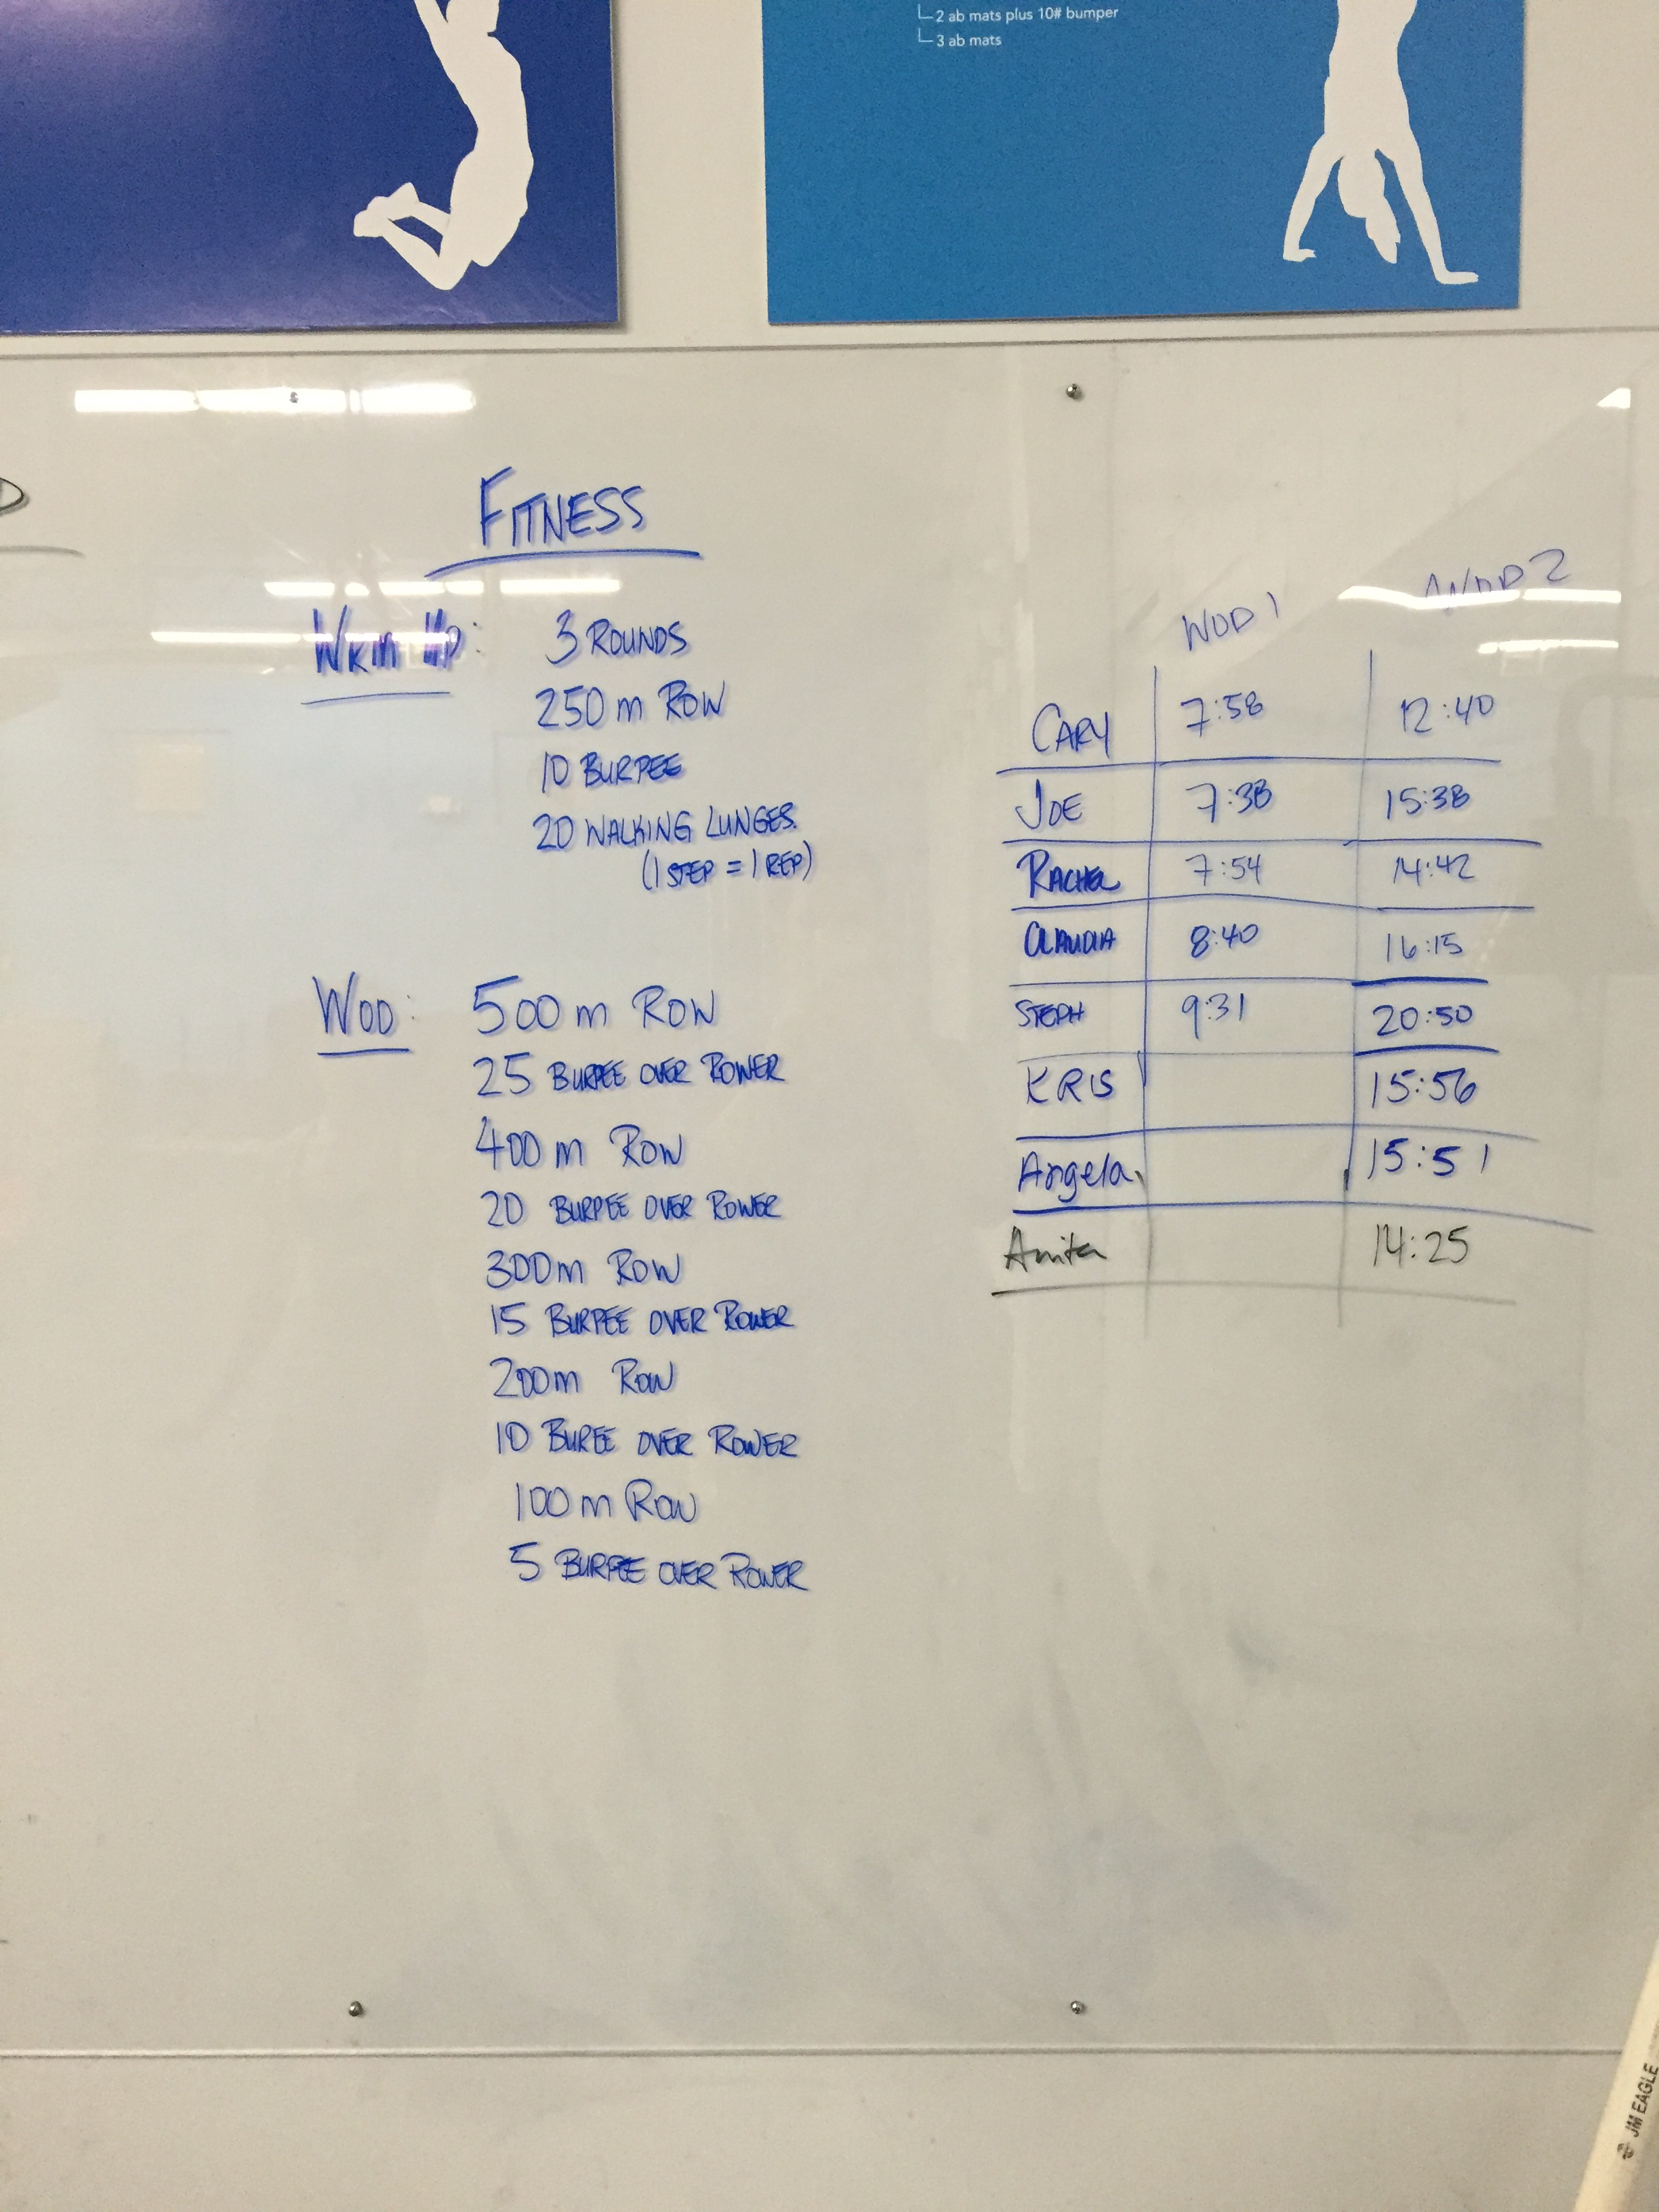 2 ab mats plus 10# bumper
3 ab mats
FITNESS
WRM UP:
3 ROUNDS
250 m ROW
10 BURPEE
20 WALKING LUNGES.
(1 STEP = 1 REP)
WOD:
500 m ROW
25 BURPEE OVER ROWER
400 m ROW
20 BURPEE OVER ROWER
300m ROW
15 BURPEE OVER ROWER
200m ROW
10 BUREE OVER ROWER
100 m ROW
5 BURPEE OVER ROWER
WOD 1 WOD 2
CARY 7:58 12:40
JOE 7:38 15:38
RACHEL 7:54 14:42
CLAUDIA 8:40 16:15
STEPH 9:31 20:50
KRIS 15:56
Angela 15:51
Anita 14:25
JM EAGLE